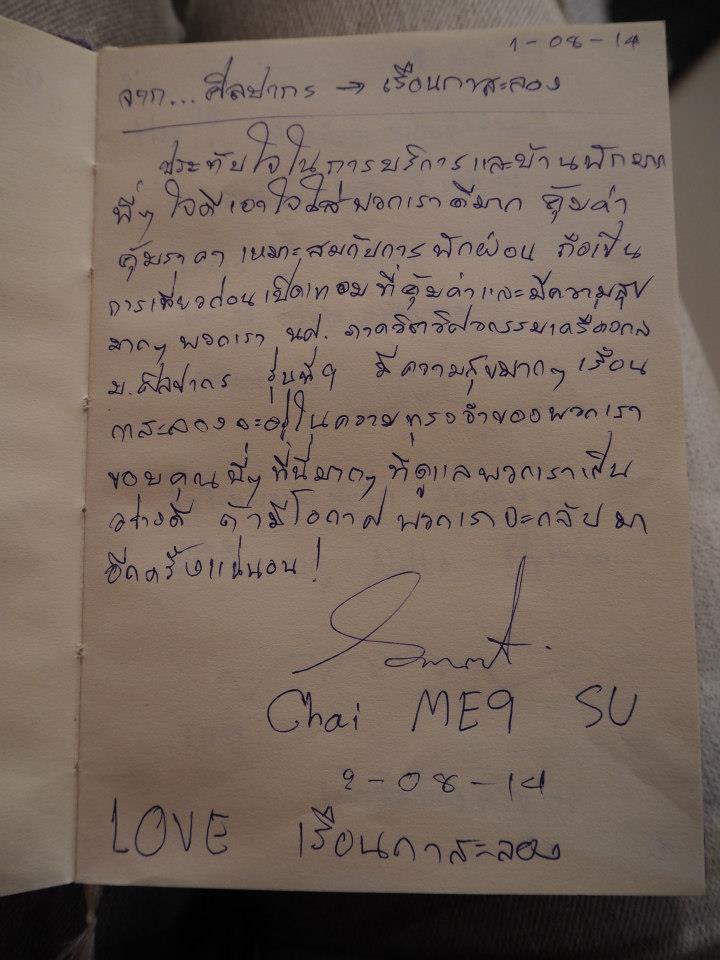 1-08-14
จาก... ศิลปากร → เรือนกาสะลอง
ประทับใจในการบริการและบ้านพักมาก
พี่ๆ ใจดีเอาใจใส่พวกเราดีมาก คุ้มค่า
คุ้มราคา เหมาะสมกับการพักผ่อน ถือเป็น
การเที่ยวก่อนเปิดเทอมที่คุ้มค่าและมีความสุข
มากๆ พวกเรา นศ. ภาควิชาวิศวกรรมเครื่องกล
ม.ศิลปากร รุ่นที่ 9 มีความสุขมากๆ เรือน
กาสะลองจะอยู่ในความทรงจำของพวกเรา
ขอบคุณพี่ๆ ที่นี่มากๆ ที่ดูแลพวกเราเป็น
อย่างดี ถ้ามีโอกาส พวกเราจะกลับมา
อีกครั้งแน่นอน!
Chai ME9 SU
2-08-14
LOVE เรือนกาสะลอง